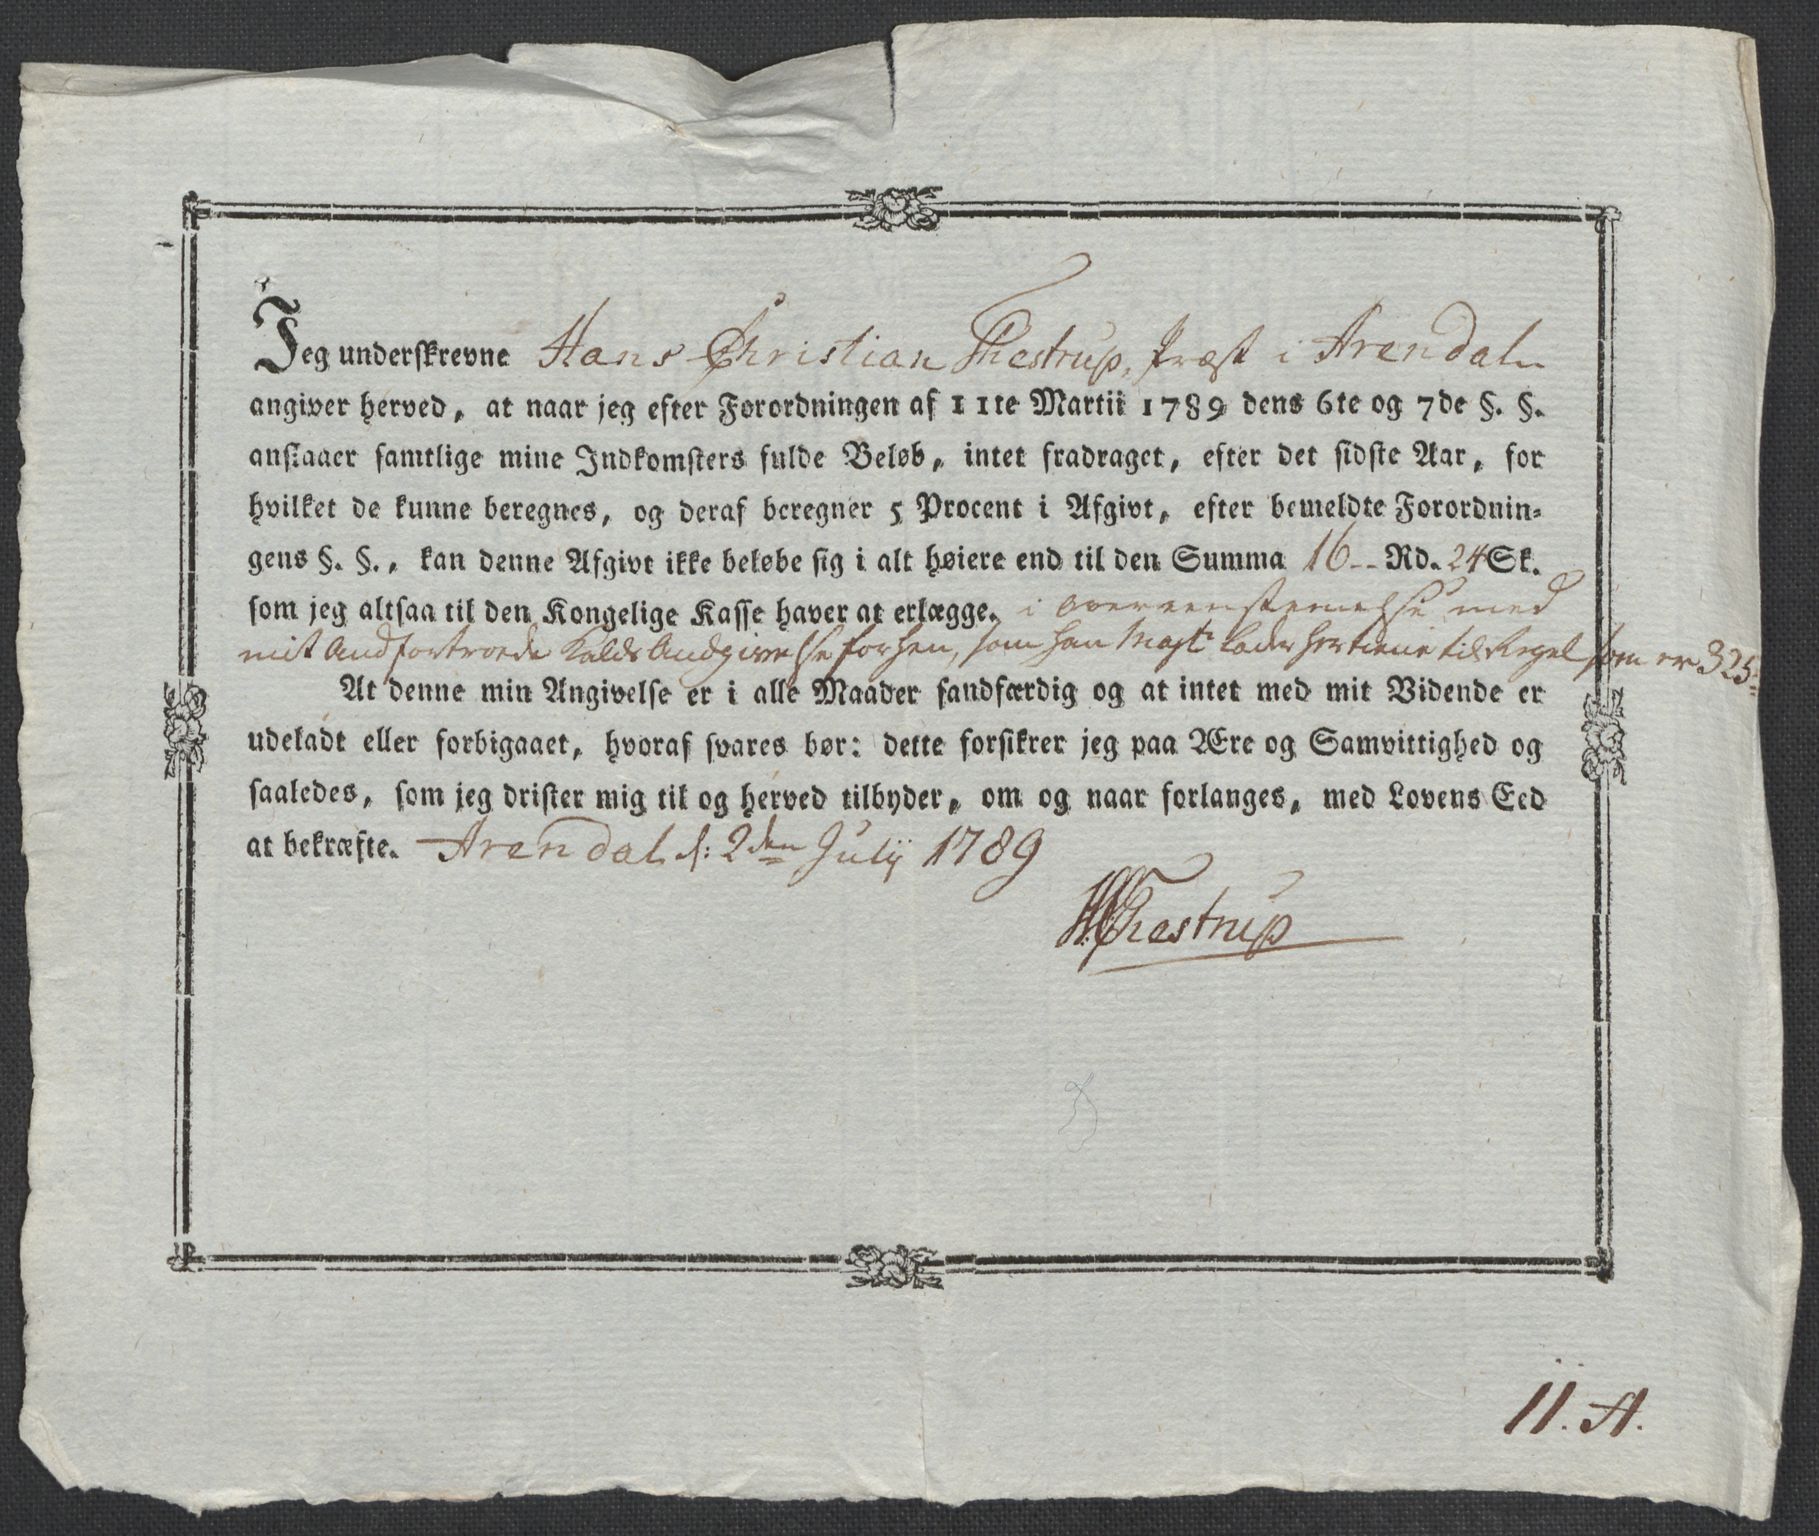 Jeg underskrevne Hans Christian Thestrup, Præst i Arendal
angiver herved, at naar jeg efter Forordningen af 11te Martii 1789 dens 6te og 7de §. §.
anslaaer samtlige mine Indkomsters fulde Beløb, intet fradraget, efter det sidste Aar, for
hvilket de kunne beregnes, og deraf beregner 5 Procent i Afgivt, efter bemeldte Forordnin-
gens §. §., kan denne Afgivt ikke beløbe sig i alt høiere end til den Summa 16 -- Rd. 24 Sk.
som jeg altsaa til den Kongelige Kasse haver at erlægge. i overeenstemelse med
mit Kalds Andgivelse forhen, som han Mayt lader tiene til Regel som er 325
At denne min Angivelse er i alle Maader sandfærdig og at intet med mit Vidende er
udeladt eller forbigaaet, hvoraf svares bør: dette forsikrer jeg paa Ære og Samvittighed og
saaledes, som jeg drister mig til og herved tilbyder, om og naar forlanges, med Lovens Eed
at bekræfte. Arendal d: 2den Julij 1789
HCThestrup
11. A.